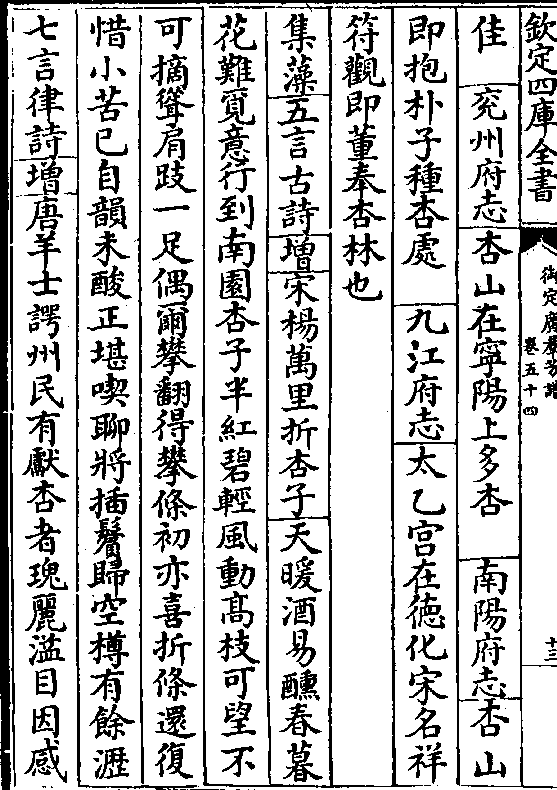 欽定四庫全書
御定廣羣芳譜
卷五十四
十三
佳　兖州府志杏山在寧陽上多杏　南陽府志杏山
即抱朴子種杏處　九江府志太乙宫在德化宋名祥
符觀即董奉杏林也
集藻五言古詩增宋楊萬里折杏子天暖酒易醺春暮
花難覓意行到南園杏子半紅碧輕風動髙枝可望不
可摘聳肩跂一足偶爾攀翻得攀條初亦喜折條還復
惜小苦已自韻未酸正堪喫聊將揷鬢歸空樽有餘瀝
七言律詩增唐羊士諤州民有獻杏者瑰麗溢目因感